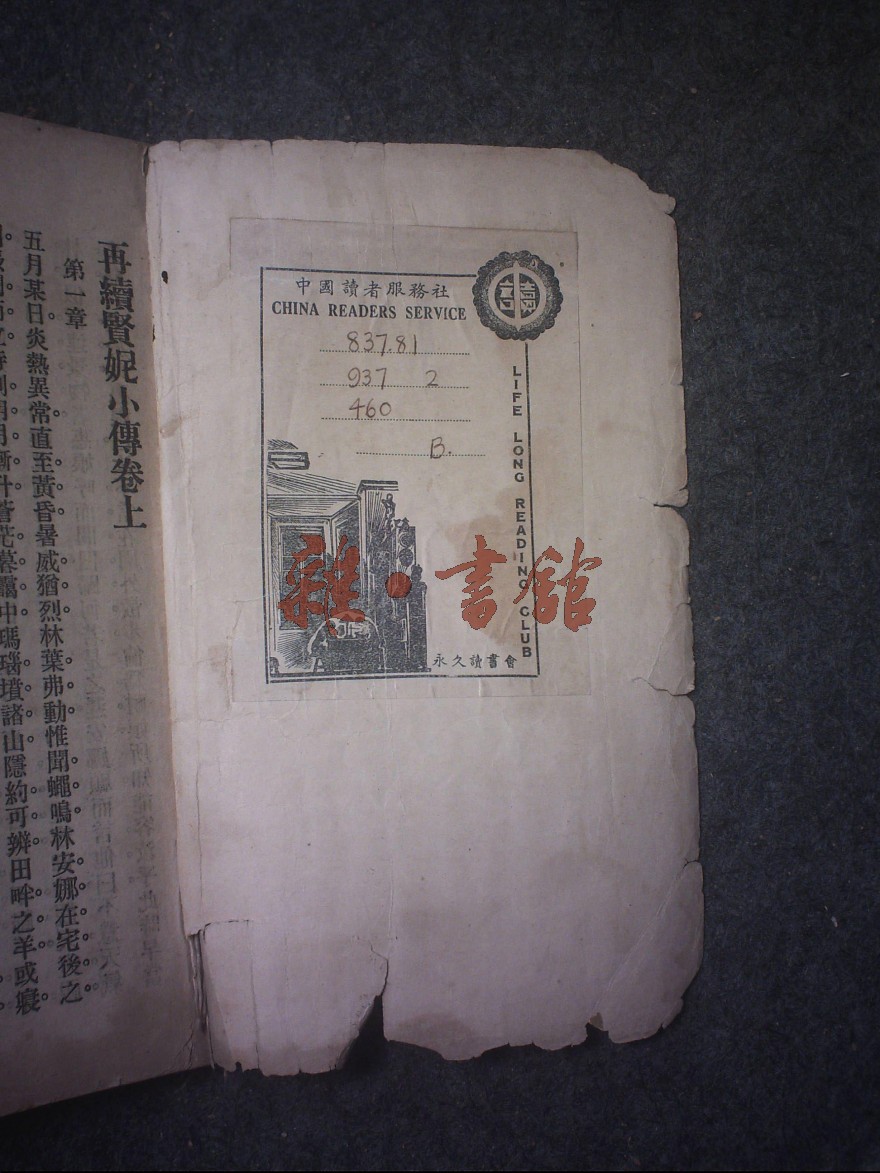 再續賢妮小傳卷上
第一章
五月某日炎熱異常直至黃昏暑威猶烈林葉弗動惟聞蠅鳴林安娜在宅後之
蒼茫暮靄中瑪瑙墳諸山隱約可辨田畔之羊或寢
中國讀者服務社
CHINA READERS SERVICE
837.81
937 2
460
B.
LIFE LONG READING CLUB
永久讀書會
雜·書館